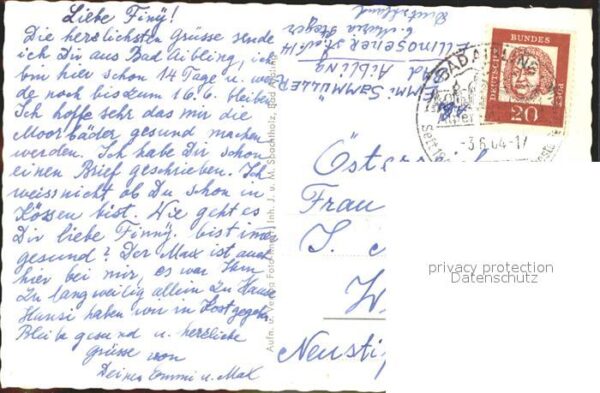 Liebe Finy!
Die herzlichsten Grüsse sende
ich Dir aus Bad Aibling, ich
bin hier schon 14 Tage u. wer
de noch bis zum 16.6. bleiben
Ich hoffe sehr das mir die
Moorbäder gesund machen
werden. Ich habe Dir schon
einen Brief geschrieben. Ich
weiss nicht ob Du schon in
Kössen bist. Wie geht es
Dir liebe Finny. bist immer
gesund? Der Max ist auch
hier bei mir, es war Ihm
zu langweilig allein zu Hause
Hansi haben wir in Kost gegeben
Bleibe gesund u. herzliche
Grüsse von
Deinen Emmi u. Max
Emmi SAMMÜLLER
Bad Aibling
Deutschland
Aufn. u. Verlag Foto Inh. J. u. M. Spachtholz, Bad Aibling
DEUTSCHE BUNDESPOST
20
BAD AIBLING
-3.6.64-17
Österreich
Frau
I.
W
Neusti
privacy protection
Datenschutz